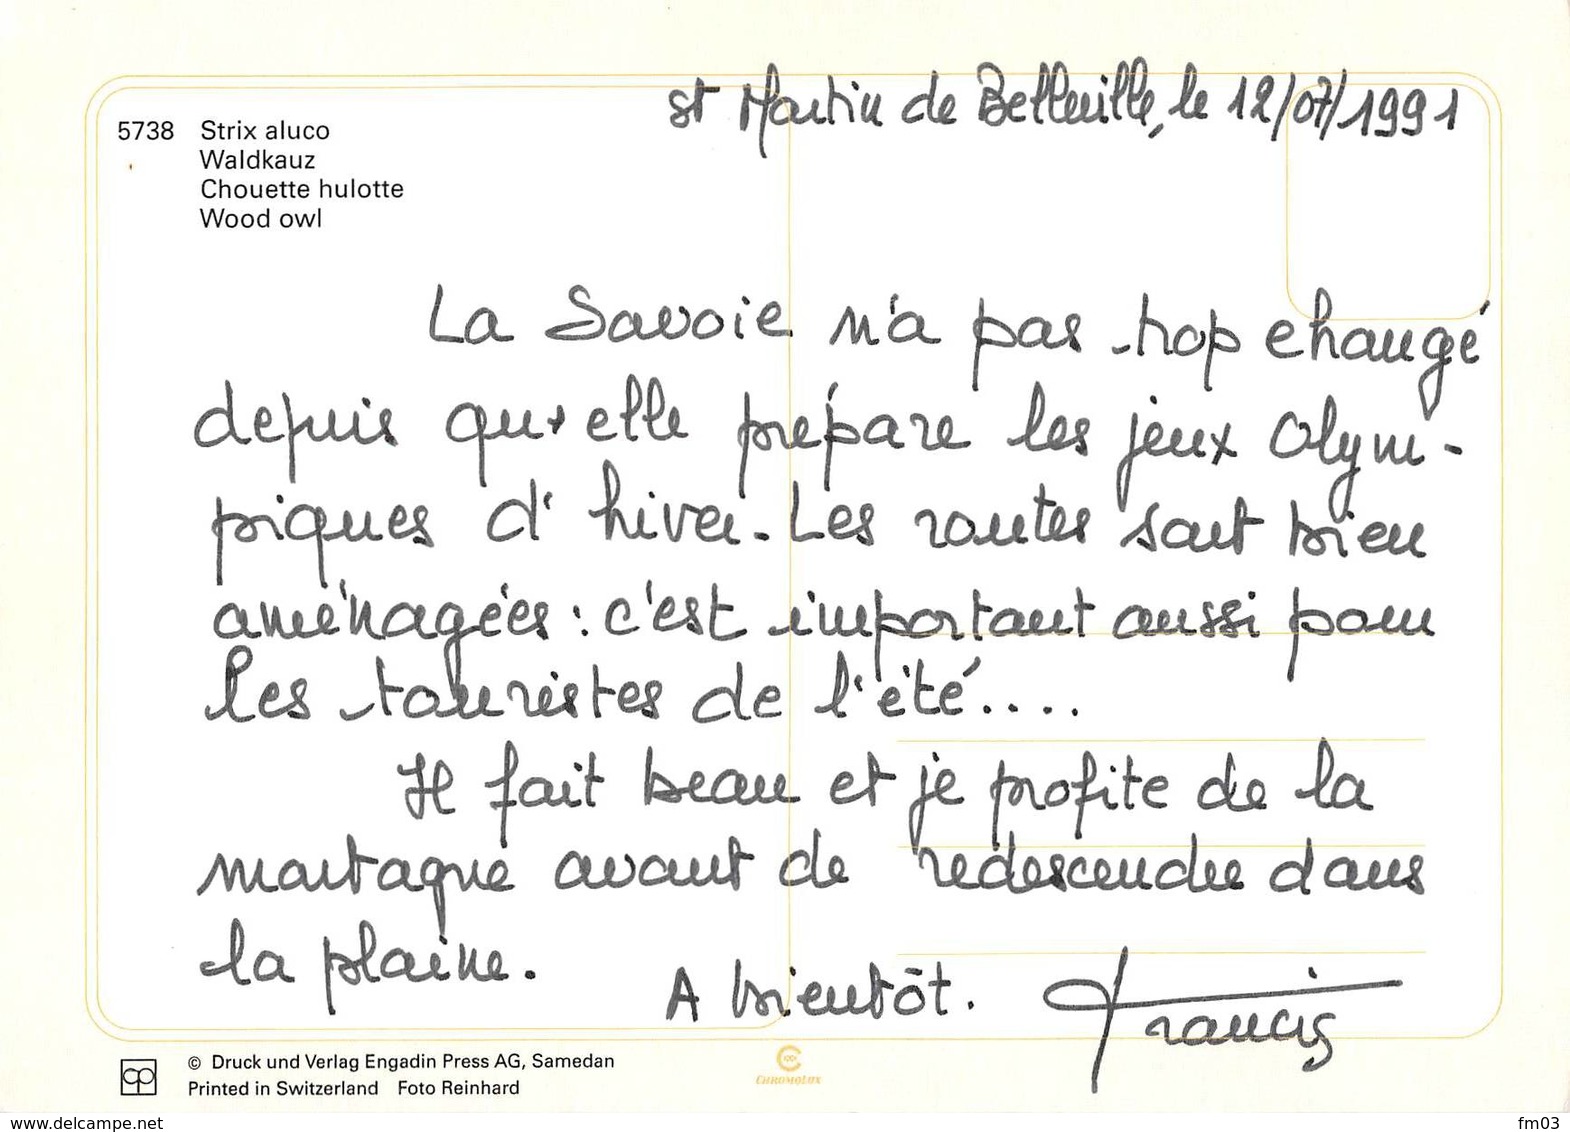 st Martin de Belleville, le 12/07/1991
5738 Strix aluco
Waldkauz
Chouette hulotte
Wood owl
La Savoie n'a pas trop changé
depuis qu'elle prépare les jeux Olym-
piques d'hiver. Les routes sont bien
aménagées : c'est important aussi pour
les touristes de l'été....
Il fait beau et je profite de la
montagne avant de redescendre dans
la plaine.
A bientôt. Francis
cp © Druck und Verlag Engadin Press AG, Samedan
Printed in Switzerland Foto Reinhard
CHROMOLUX
www.delcampe.net
fm03